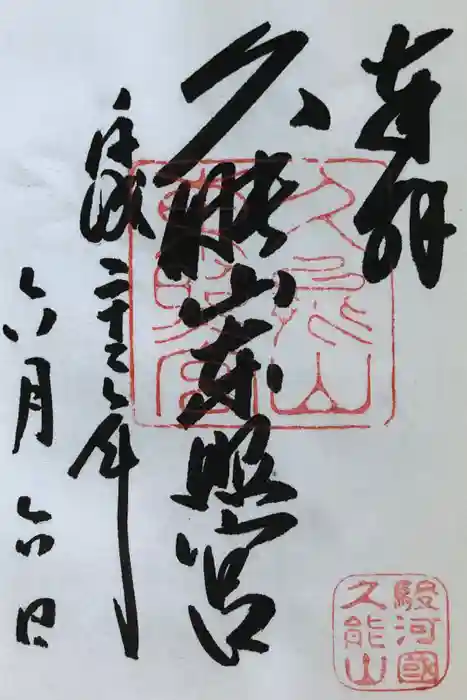 奉拝
久能山東照宮
平成二十六年
六月六日
久能山
東照宮
駿河國
久能山